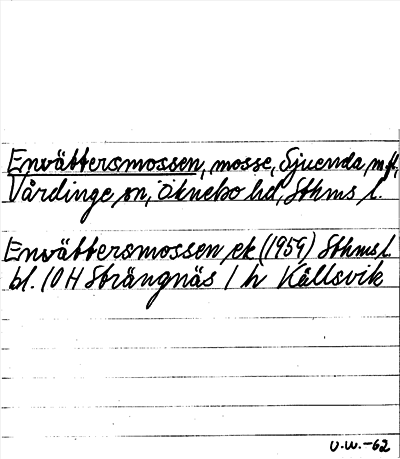 Envättersmossen, mosse, Sjuenda, mfl,
Vårdinge sn, Öknebo hd, Sthms l.
Envättersmossen ek (1959) Sthms l.
bl. 10 H Strängnäs 1 h Källsvik
U.W.-62